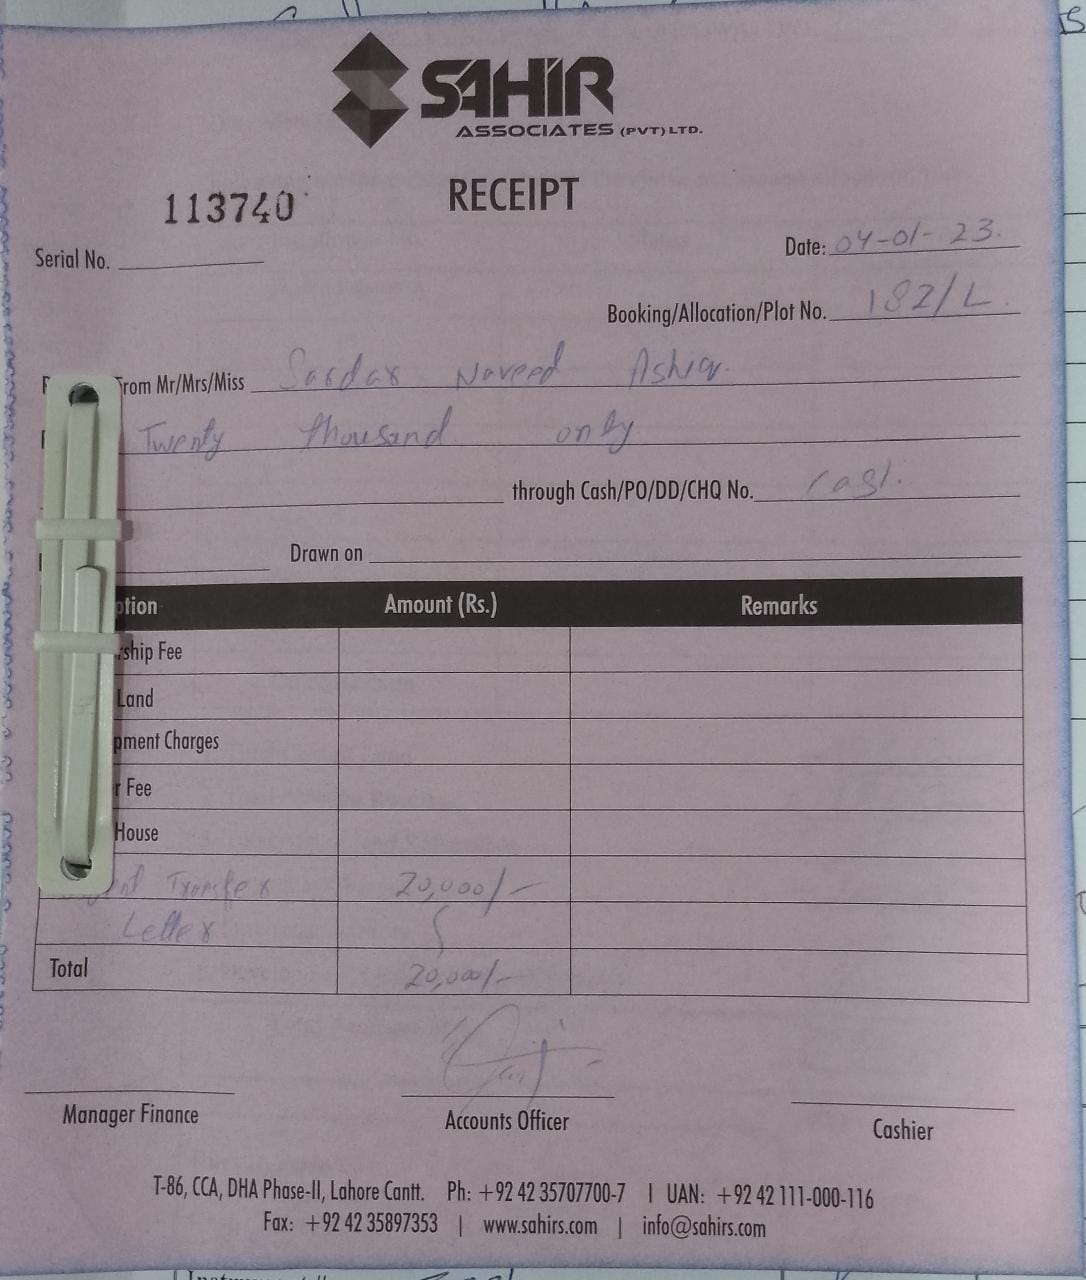 SAHIR
ASSOCIATES (PVT) LTD.
RECEIPT
113740
Serial No.
Date: 04-01-23.
Booking/Allocation/Plot No. 182/L
From Mr/Mrs/Miss Sardar Naveed Ashiq.
Twenty thousand only
through Cash/PO/DD/CHQ No.
Drawn on
ption Amount (Rs.) Remarks
rship Fee
Land
pment Charges
r Fee
House
Transfer 20,000/-
Letter
Total 20,000/-
Manager Finance
Accounts Officer
Cashier
T-86, CCA, DHA Phase-II, Lahore Cantt. Ph: +92 42 35707700-7 | UAN: +92 42 111-000-116
Fax: +92 42 35897353 | www.sahirs.com | info@sahirs.com